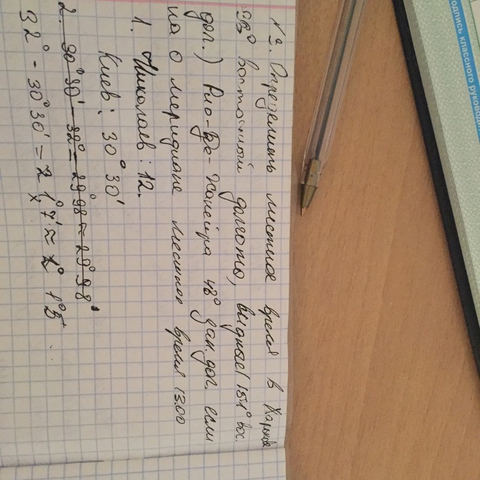 №2. Определить местное время в Харькове
38° восточной долготы, Сиднее (151° вос.
дол.) Рио-Де-Жанейра 43° зап. дол. если
на 0 меридиане местное время 13.00
1. Николаев: 12.
Киев: 30°30'
2. 30°30' - 32° = 29°98 ≈ 29°98'
32° - 30°30' = 2 1°7' ≈ 2° 1°5
одпись классного руковод